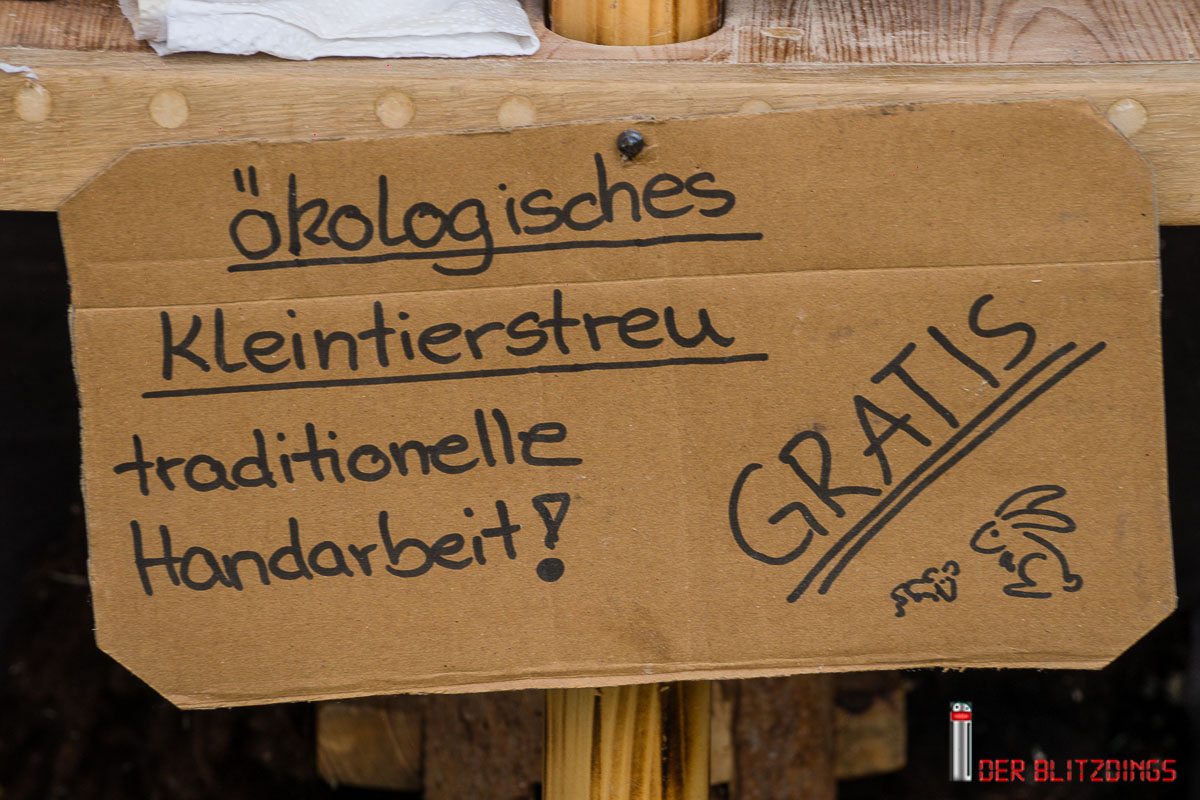 ökologisches
Kleintierstreu
traditionelle
Handarbeit!
GRATIS
DER BLITZDINGS